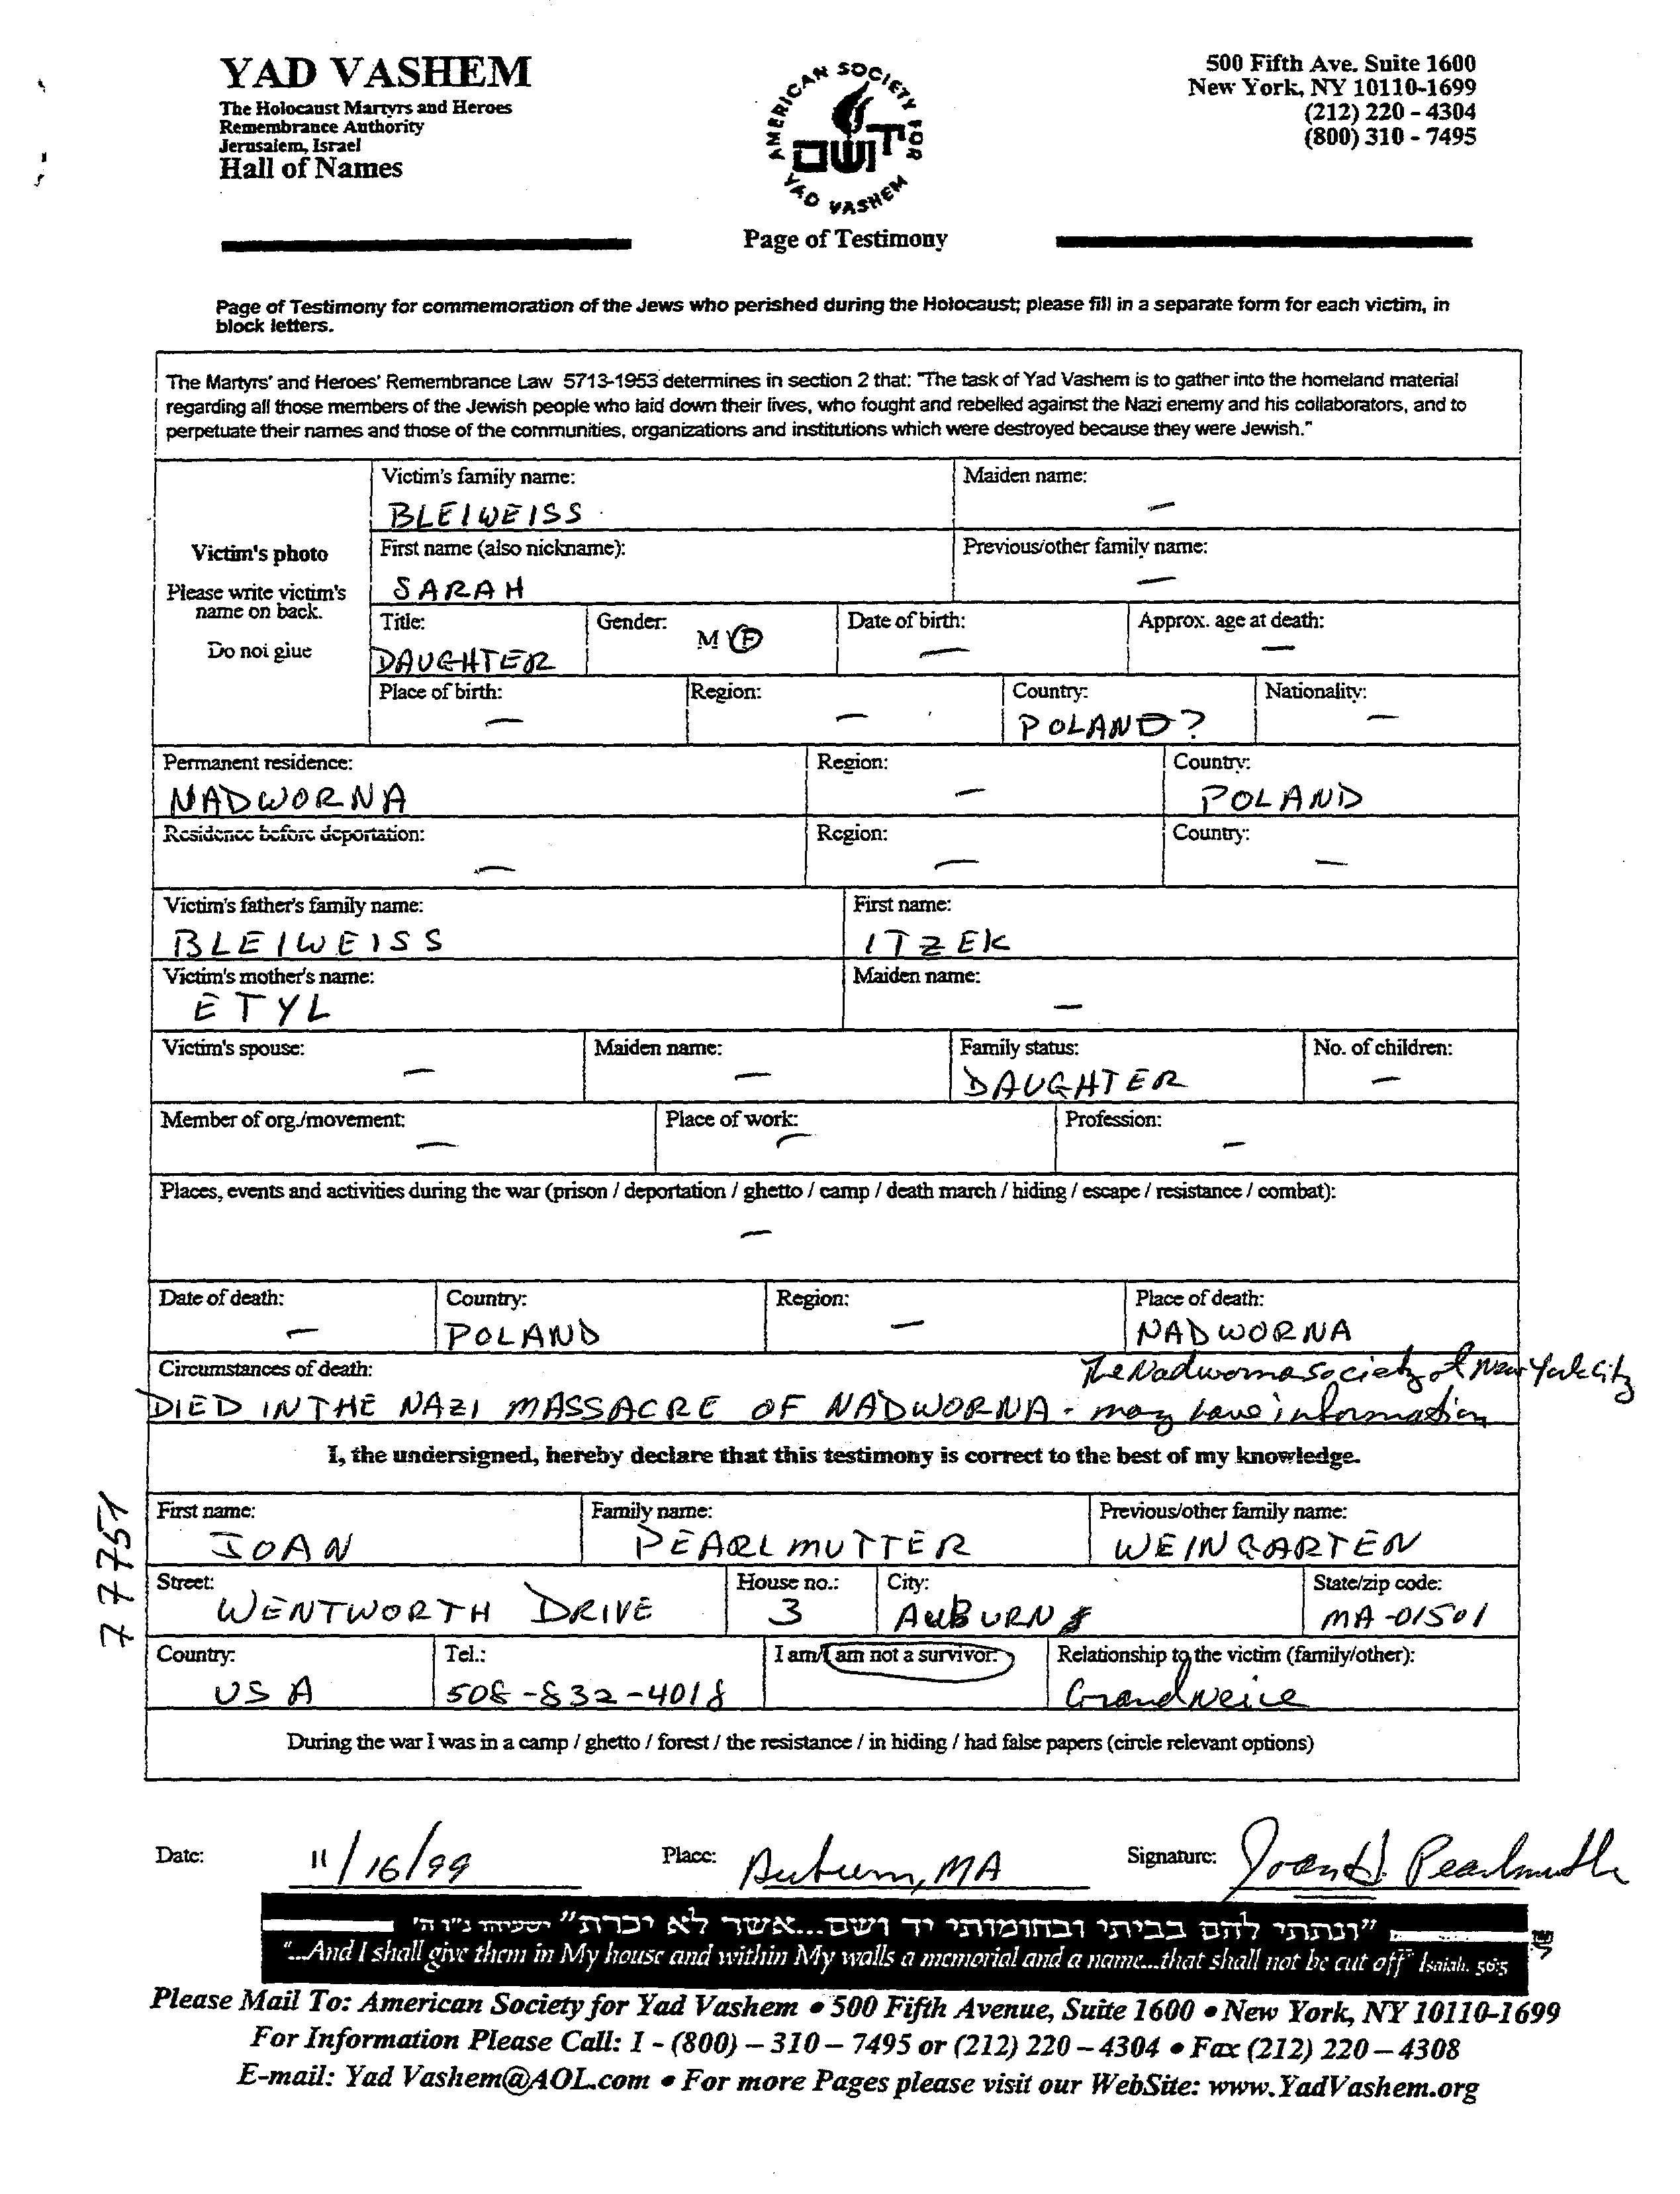 YAD VASHEM
The Holocaust Martyrs and Heroes
Remembrance Authority
Jerusalem, Israel
Hall of Names
AMERICAN SOCIETY FOR YAD VASHEM
יד ושם
500 Fifth Ave. Suite 1600
New York, NY 10110-1699
(212) 220 - 4304
(800) 310 - 7495
Page of Testimony
Page of Testimony for commemoration of the Jews who perished during the Holocaust; please fill in a separate form for each victim, in
block letters.
The Martyrs' and Heroes' Remembrance Law 5713-1953 determines in section 2 that: "The task of Yad Vashem is to gather into the homeland material
regarding all those members of the Jewish people who laid down their lives, who fought and rebelled against the Nazi enemy and his collaborators, and to
perpetuate their names and those of the communities, organizations and institutions which were destroyed because they were Jewish."
Victim's photo
Please write victim's
name on back.
Do not glue
Victim's family name: Maiden name:
BLEIWEISS —
First name (also nickname): Previous/other family name:
SARAH —
Title: Gender: M/F Date of birth: Approx. age at death:
DAUGHTER — —
Place of birth: Region: Country: Nationality:
— — POLAND? —
Permanent residence: Region: Country:
NADWORNA — POLAND
Residence before deportation: Region: Country:
— — —
Victim's father's family name: First name:
BLEIWEISS ITZEK
Victim's mother's name: Maiden name:
ETYL —
Victim's spouse: Maiden name: Family status: No. of children:
— — DAUGHTER —
Member of org./movement: Place of work: Profession:
— — —
Places, events and activities during the war (prison / deportation / ghetto / camp / death march / hiding / escape / resistance / combat):
—
Date of death: Country: Region: Place of death:
— POLAND — NADWORNA
Circumstances of death: The Nadworna Society of New York City
DIED IN THE NAZI MASSACRE OF NADWORNA - may have information
I, the undersigned, hereby declare that this testimony is correct to the best of my knowledge.
First name: Family name: Previous/other family name:
JOAN PEARLMUTTER WEINGARTEN
Street: House no.: City: State/zip code:
WENTWORTH DRIVE 3 AUBURN MA-01501
Country: Tel.: I am/I am not a survivor. Relationship to the victim (family/other):
USA 508-832-4018 Grand Neice
During the war I was in a camp / ghetto / forest / the resistance / in hiding / had false papers (circle relevant options)
77751
Date: 11/16/99 Place: Auburn, MA Signature: Joan H. Pearlmutter
"ונתתי להם בביתי ובחומותי יד ושם...אשר לא יכרת" ישעיהו נ"ו ה'
"...And I shall give them in My house and within My walls a memorial and a name...that shall not be cut off" Isaiah. 56:5
Please Mail To: American Society for Yad Vashem • 500 Fifth Avenue, Suite 1600 • New York, NY 10110-1699
For Information Please Call: 1 - (800) – 310 – 7495 or (212) 220 – 4304 • Fax (212) 220 – 4308
E-mail: Yad Vashem@AOL.com • For more Pages please visit our WebSite: www.YadVashem.org